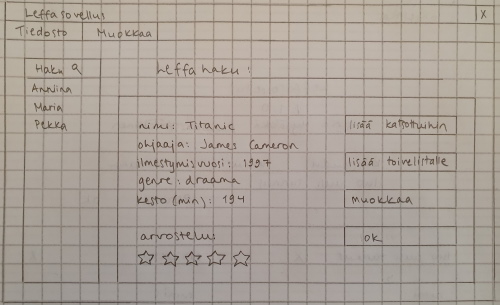 Leffasovellus X
Tiedosto Muokkaa
Haku
Anniina
Maria
Pekka
Leffahaku:
nimi: Titanic
ohjaaja: James Cameron
ilmestymisvuosi: 1997
genre: draama
kesto (min): 194
arvostelu:
lisää katsottuihin
lisää toivelistalle
muokkaa
ok